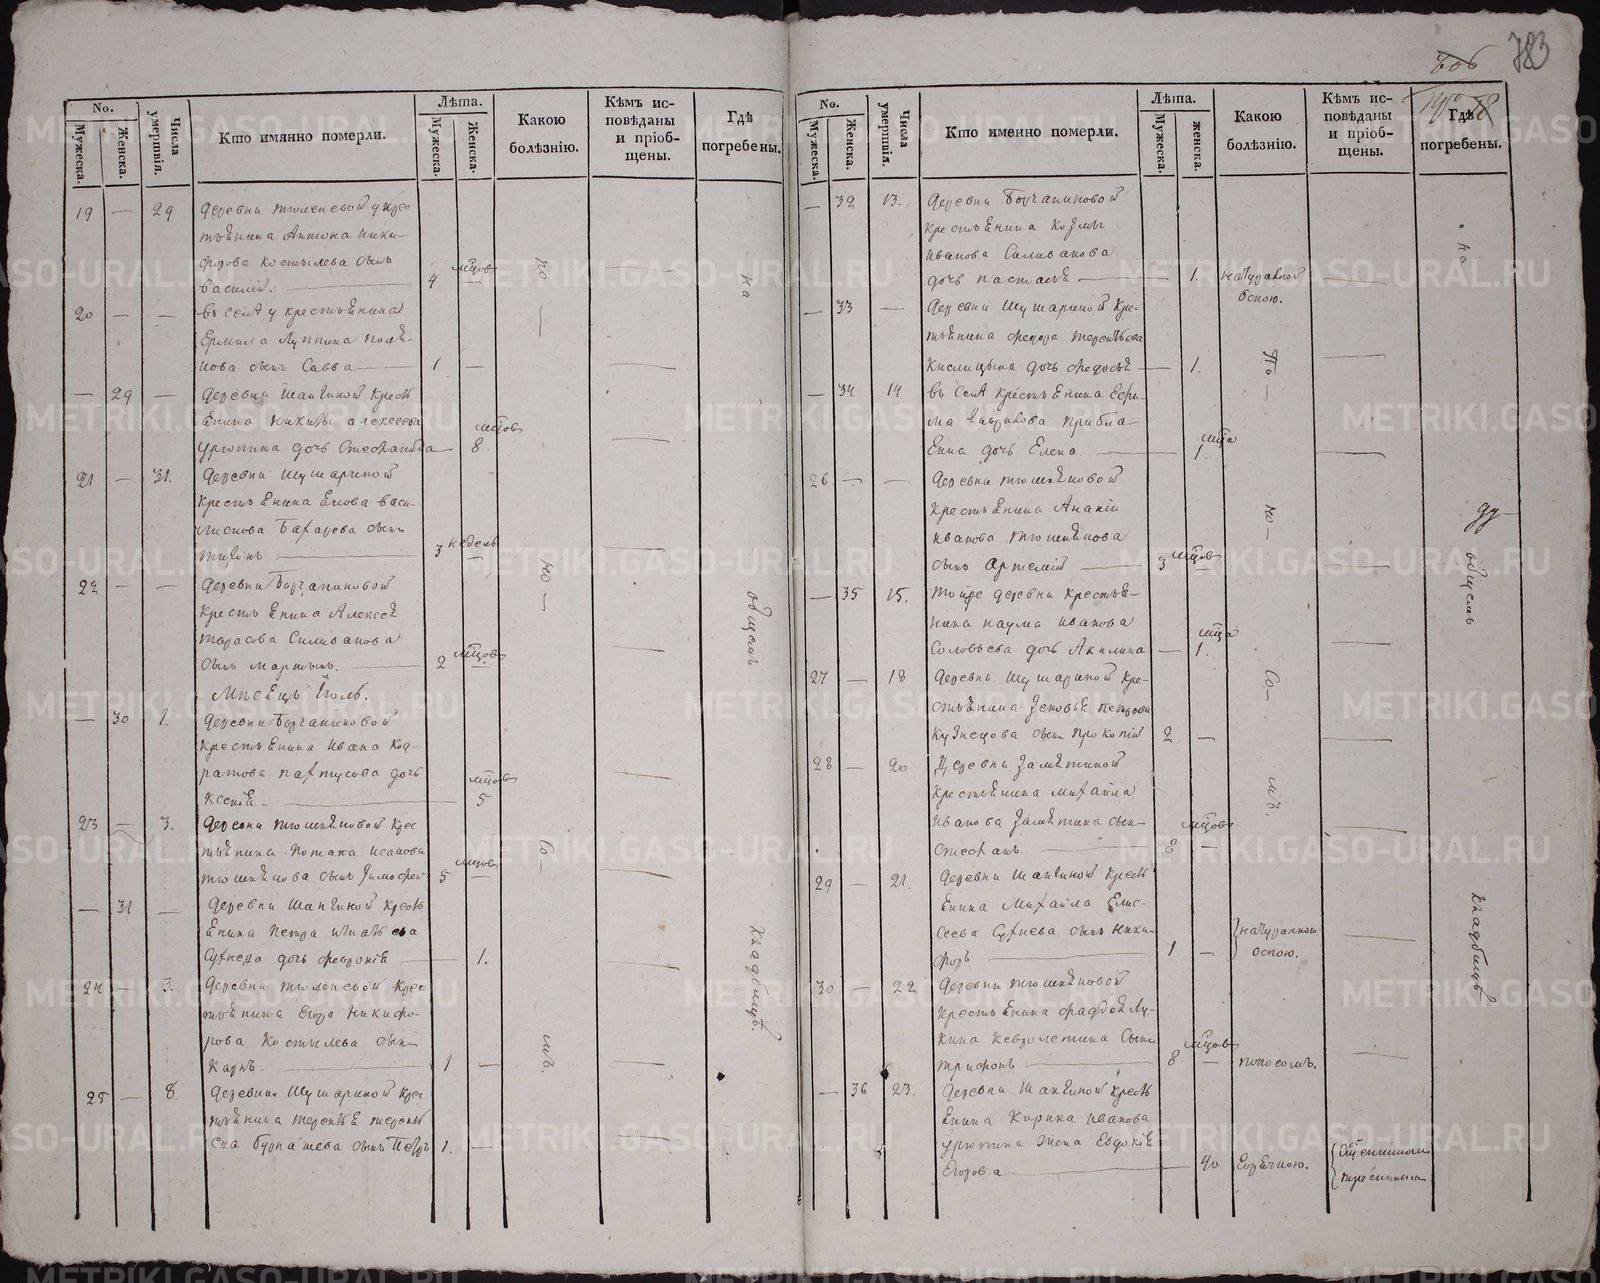 783
706
No.
Мужеска.
Женска.
Числа умертвія.
Кто имянно померли.
Лѣта.
Мужеска.
Женска.
Какою болѣзнію.
Кѣмъ исповѣданы и пріобщены.
Гдѣ погребены.
19 — 29 деревни тюленевой у крес
тьенина Антона Ники-
форова Костылева сынъ
василій. 4 мцов
20 — — въ селѣ у крестьенина
Ермила Луппина поле-
нова сынъ Савва 1 —
— 29 — деревни Шанѣиной кресть
Енина Никиты алексеева
урюпина дочь Стефанида 8 мцов
21 — 31. деревни Шушариной
крестьЕнина
Бахарева сынъ
тихонъ 3 недель
22 — — деревни Борчаниновой
крестьЕнина Алексея
тарасова Силиванова
сынъ мартынъ. 2 мцов
Мѣсецъ Іюль.
— 30 1. деревни Борчаниновой
крестьЕнина Ивана Код-
ратова пахтусова дочь
Ксенія 5 мцов
23 — 3. деревни тюшняковой крес
тьенина Потапа Иванова
сынъ Тимофей 5 мцов
— 31 — деревни Шанѣиной кресть
Енина Петра игнатьева
Сутнева дочь февронія 1.
24 — 3. деревни тюленевой крес
тьенина Егора Никифо-
рова Костылева сынъ
Карпъ. 1 —
25 — 8 деревни Шушариной крес
тьенина терентья терентье
ева бурнашева сынъ Петръ 1. —
но —
ю —
со —
мъ.
на
общемъ
кладбищѣ.
No.
Мужеска.
Женска.
Числа умертвія.
Кто именно померли.
Лѣта.
Мужеска.
женска.
Какою болѣзнію.
Кѣмъ исповѣданы и пріобщены.
Гдѣ погребены.
— 32 13. деревни Борчаниновой
крестьЕнина Козмы
Иванова Силиванова
дочь настасья 1. натуральной оспою.
— 33 — деревни Шушариной кре-
тьенина федора терентьева
Кислицына дочь федосья 1.
— 34 14 въ селѣ крестьЕнина Ефи-
ма гаврилова прибла-
Енна дочь Елена 1. мца
26 — — деревни тюшняковой
крестьЕнина Ананіи
иванова тюшнякова
сынъ артемій 3 мцов
— 35 15. той же деревни крестье-
нина наума иванова
Соловьева дочь Акилина — 1. мца
27 — 18 деревни Шушариной кре-
стьенина Зеновья петрова
Кузнецова сынъ прокопій 2 —
28 — 20 Деревни Замятиной
крестьЕнина михайла
иванова Замятина сынъ
стефанъ. 8 мцов
29 — 21. деревни Шанѣиной кресть
Енина Михайла Елис-
сеева Сутнева сынъ ники-
форъ 1 — натуральною оспою.
30 — 22 деревни тюшняковой
крестьЕнина фаддея Лу-
кина Кевролетина Сынъ
трифонъ 8 мцов — поносомъ.
— 36 23. деревни Шанѣиной кресть
Енина Кирика иванова
урюпина жена Евдокія
Егорова 40 горячкою. священникомъ
общемъ
кладбищѣ